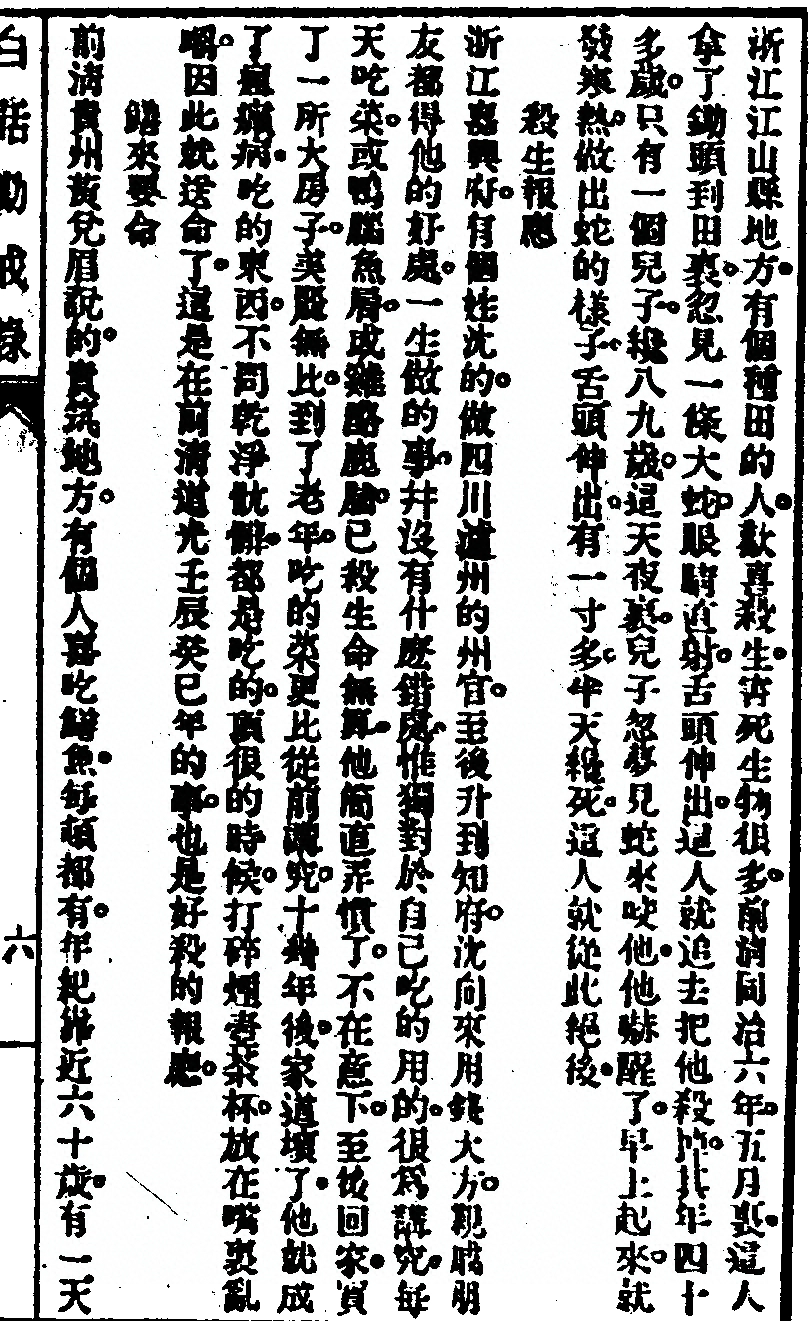 浙江江山縣地方。有個種田的人。歡喜殺生。害死生物很多。前淸同治六年。五月裏。這人
拿了鋤頭到田裏。忽見一條大蛇。眼睛直射。舌頭伸出。這人就追去把他殺。其年四十
多歲。只有一個兒子。纔八九歲。這天夜裏。兒子忽夢見蛇來咬他。他嚇醒了。早上起來。就
發寒熱。做出蛇的樣子。舌頭伸出。有一寸多。半天就死。這人就從此絕後。
殺生報應
浙江嘉興府。有個姓沈的。做四川瀘州的州官。至後升到知府。沈向來用錢大方。親戚朋
友都得他的好處。一生做的事。幷沒有什麽錯處。惟獨對於自己吃的用的。很爲講究。每
天吃菜。或鴨腦魚脣。或雞酪鹿腦。已殺生命無算。他簡直弄慣了。不在意下。至後回家。買
了一所大房子。美麗無比。到了老年。吃的菜更比從前講究。十幾年後。家道壞了。他就成
了瘋癲病。吃的東西。不問乾淨骯髒。都是吃的。頂很的時候。打碎烟壺茶杯。放在嘴裏亂
嚼。因此就送命了。這是在前淸道光壬辰癸巳年的事。也是好殺的報應。
鱔來要命
前淸貴州黃兌眉說的。貴筑地方。有個人喜吃鱔魚。每頓都有。年紀將近六十歲。有一天
白話勸戒錄
六